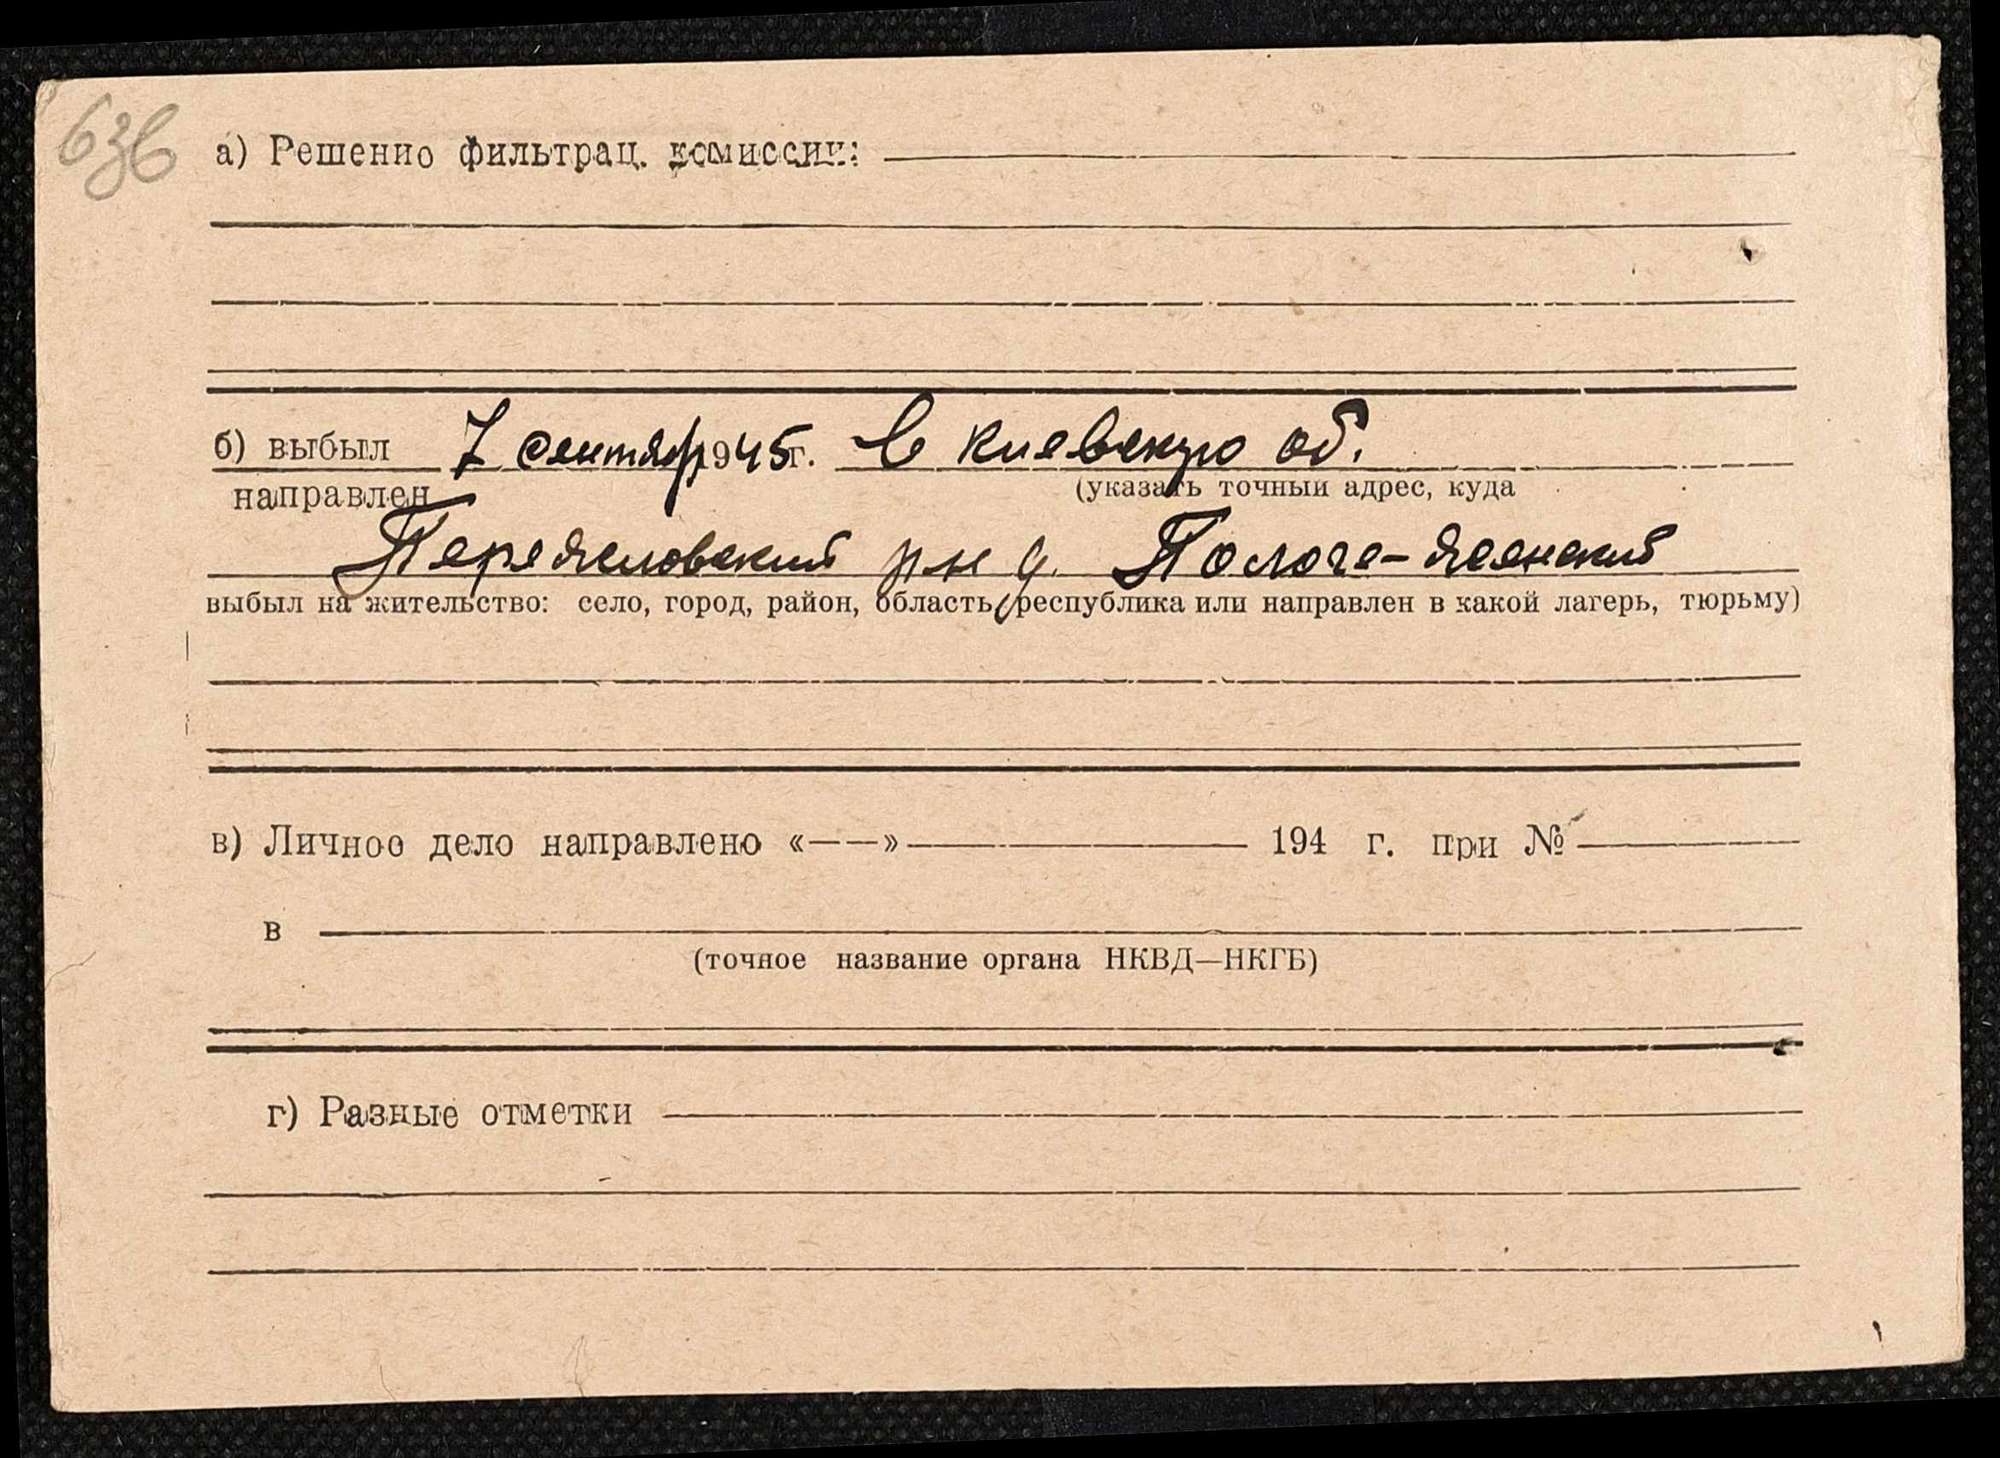 636
а) Решение фильтрац. комиссии:
б) выбыл 7 сентябр 1945 г. в киевскую об.
направлен (указать точный адрес, куда
Переясловский р-н д. Пологе-ясенский
выбыл на жительство: село, город, район, область, республика или направлен в какой лагерь, тюрьму)
в) Личное дело направлено «——» 194 г. при №
в
(точное название органа НКВД—НКГБ)
г) Разные отметки